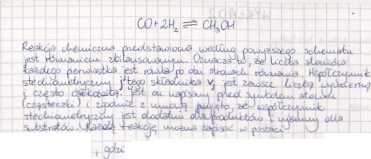 CO + 2H₂ ⇌ CH₃OH
Reakcja chemiczna przedstawiona według powyższego schematu
jest równaniem zbilansowanym. Oznacza to, że liczba atomów
każdego pierwiastka jest równa po obu stronach równania. Współczynnik
stechiometryczny tego składnika νᵢ jest zawsze liczbą wymierną
i często całkowitą. Jest on napisany przed symbolem atomu
(cząsteczki) i zgodnie z umową przyjęto, że współczynnik
stechiometryczny jest dodatni dla produktów i ujemny dla
substratów. Każdą reakcję można zapisać w postaci
gdzie